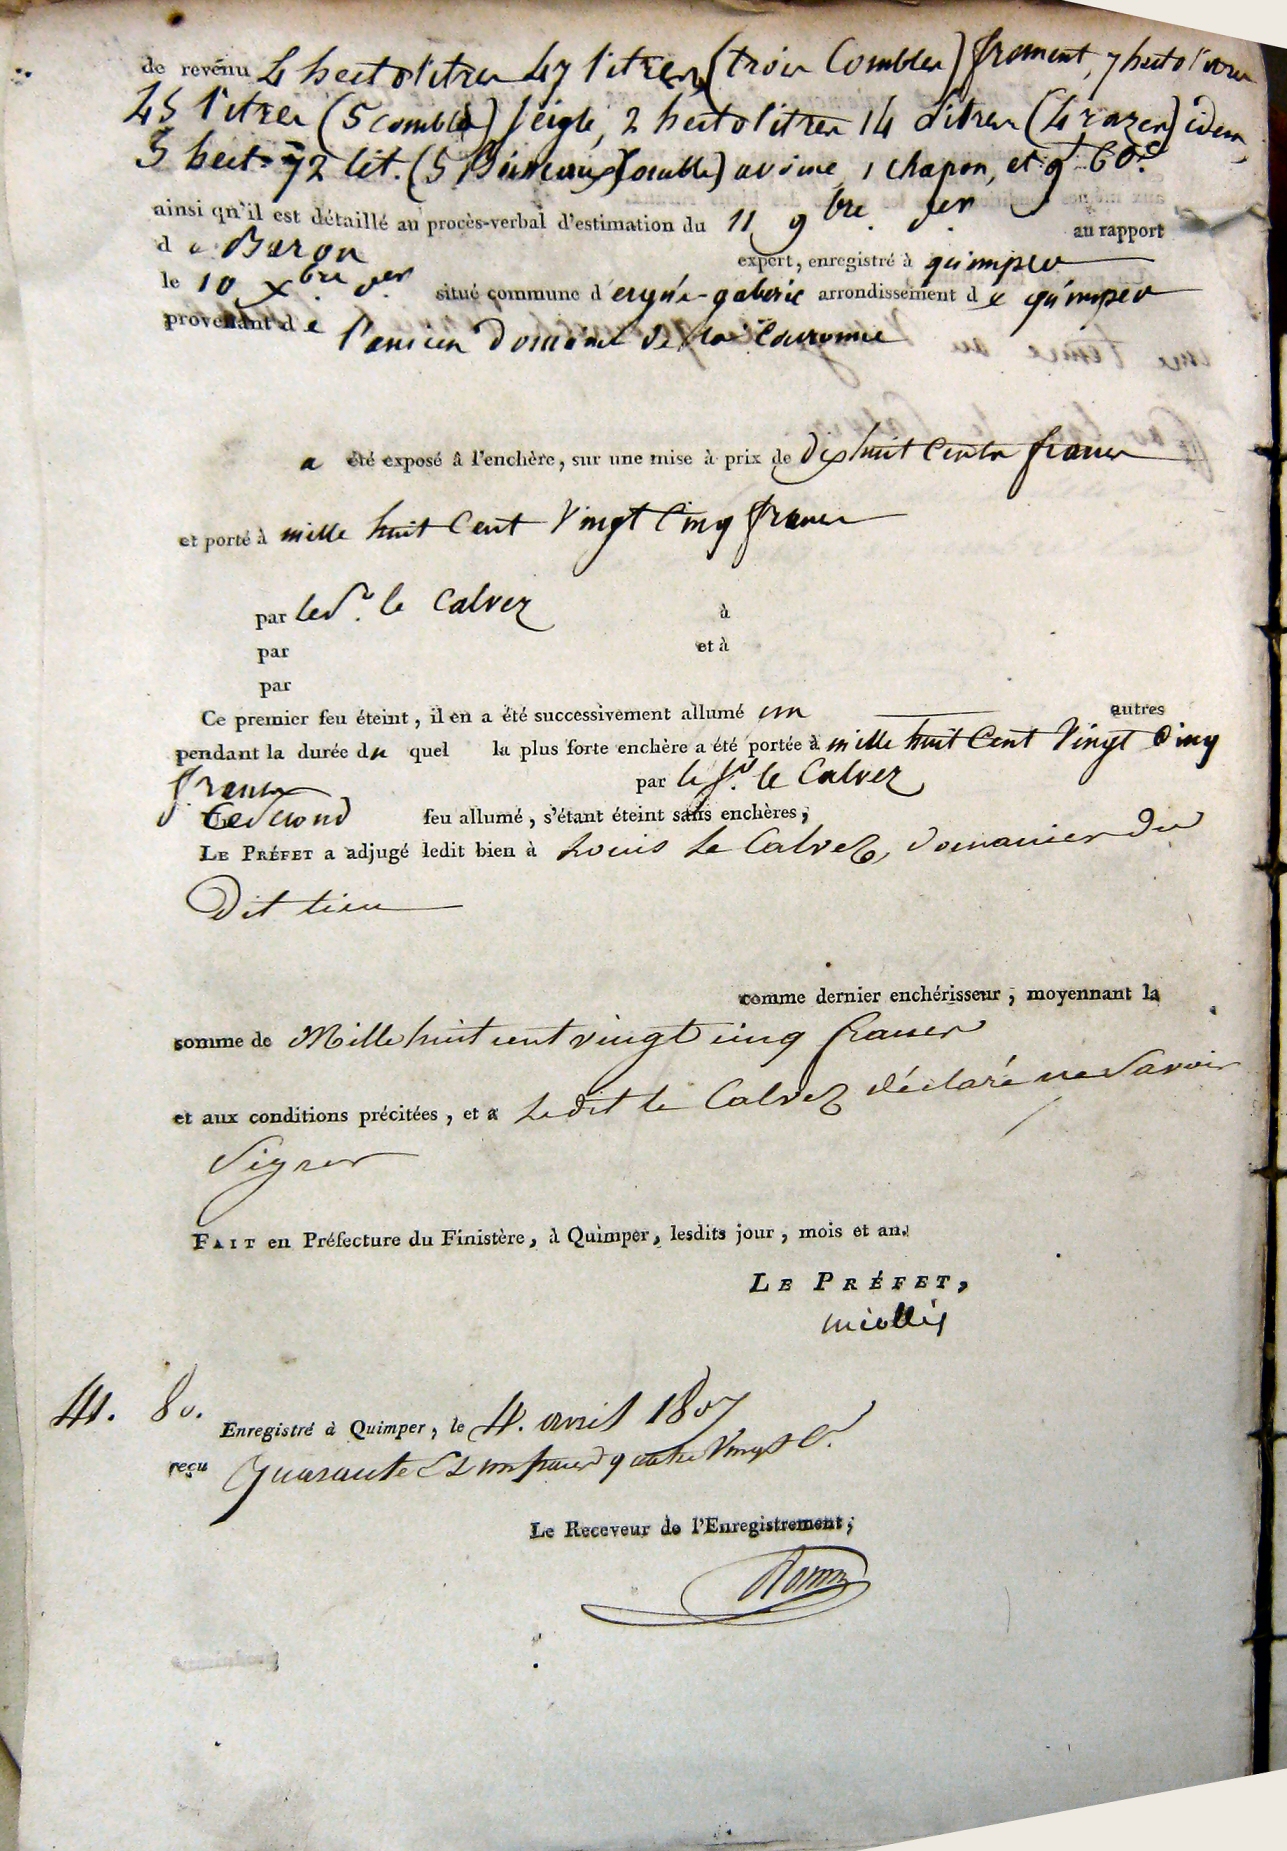 de revenu 4 hectolitres 47 litres, (trois Combles) froment, 7 hectolitres
45 litres (5 combles) seigle, 2 hectolitres 14 litres (4 razes) idem,
5 hect. 72 lit. (5 comble) avoine, 1 chapon, et 9f 60c.
ainsi qu'il est détaillé au procès-verbal d'estimation du 11 9bre. der. au rapport
d e Baron expert, enregistré à quimper
le 10 Xbre. der situé commune d'ergué-gaberic arrondissement d e quimper
provenant d e l'ancien Domaine de la Couronne
a été exposé à l'enchère, sur une mise à prix de dix huit Cents francs
et porté à mille huit Cent Vingt Cinq francs
par le Sr. le Calvez à
par et à
par
Ce premier feu éteint, il en a été successivement allumé un autres
pendant la durée du quel la plus forte enchère a été portée à mille huit Cent Vingt Cinq
francs par le Sr. le Calvez
Ce second feu allumé, s'étant éteint sans enchères,
LE PRÉFET a adjugé ledit bien à Louis Le Calvez, domanier du
dit lieu
comme dernier enchérisseur, moyennant la
somme de Mille huit cent vingt cinq francs
et aux conditions précitées, et a Ledit le Calvez déclaré ne Savoir
Signer
FAIT en Préfecture du Finistère, à Quimper, lesdits jour, mois et an.
LE PRÉFET,
miollis
41. 80.
Enregistré à Quimper, le 4. avril 1807
reçu Quarante Et un francs quatre Vingt C.
Le Receveur de l'Enregistrement,